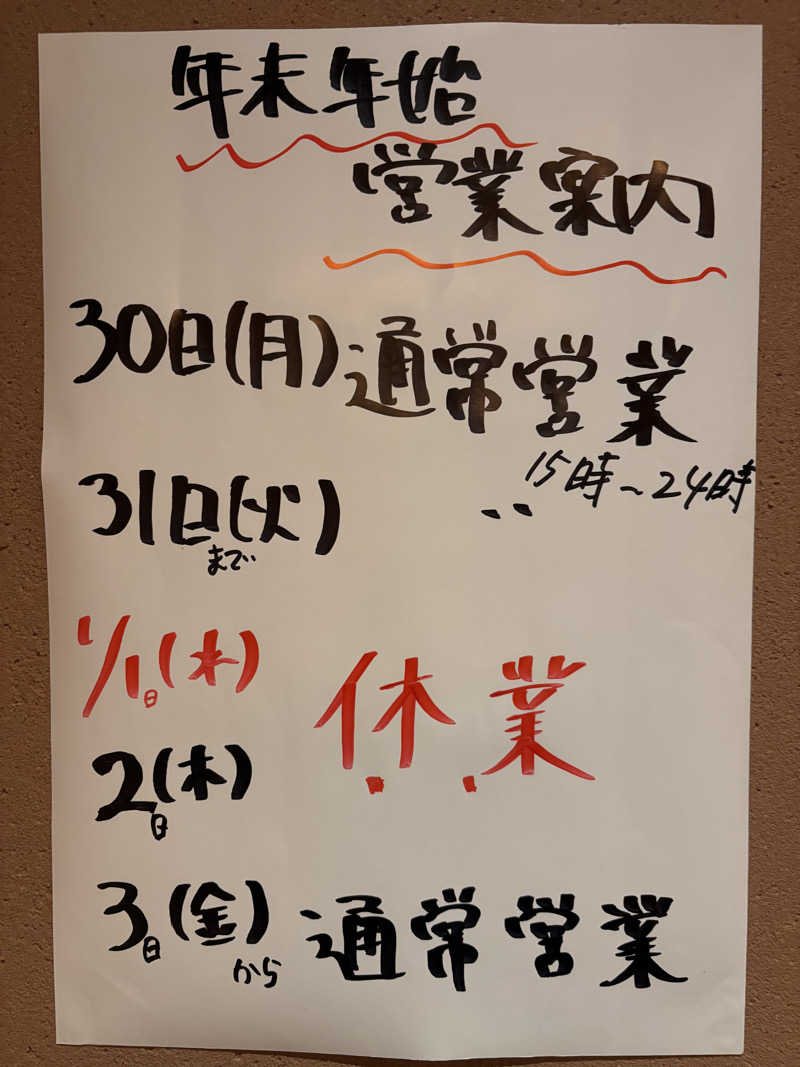 年末年始
営業案内
30日(月) 通常営業
15時~24時
31日(火)
まで
1/1日(水)
休業
2日(木)
3日(金)から 通常営業